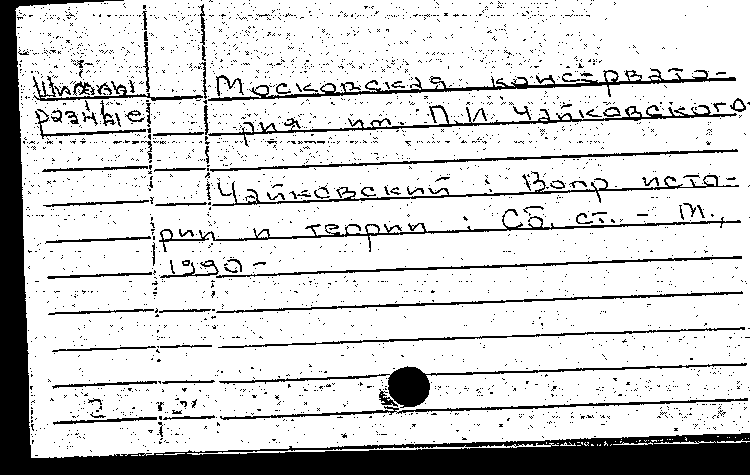 Шифры
разные
Московская консервато-
рия им. П.И. Чайковского.
Чайковский : Вопр исто-
рии и теории : Сб. ст. - М.,
1990-